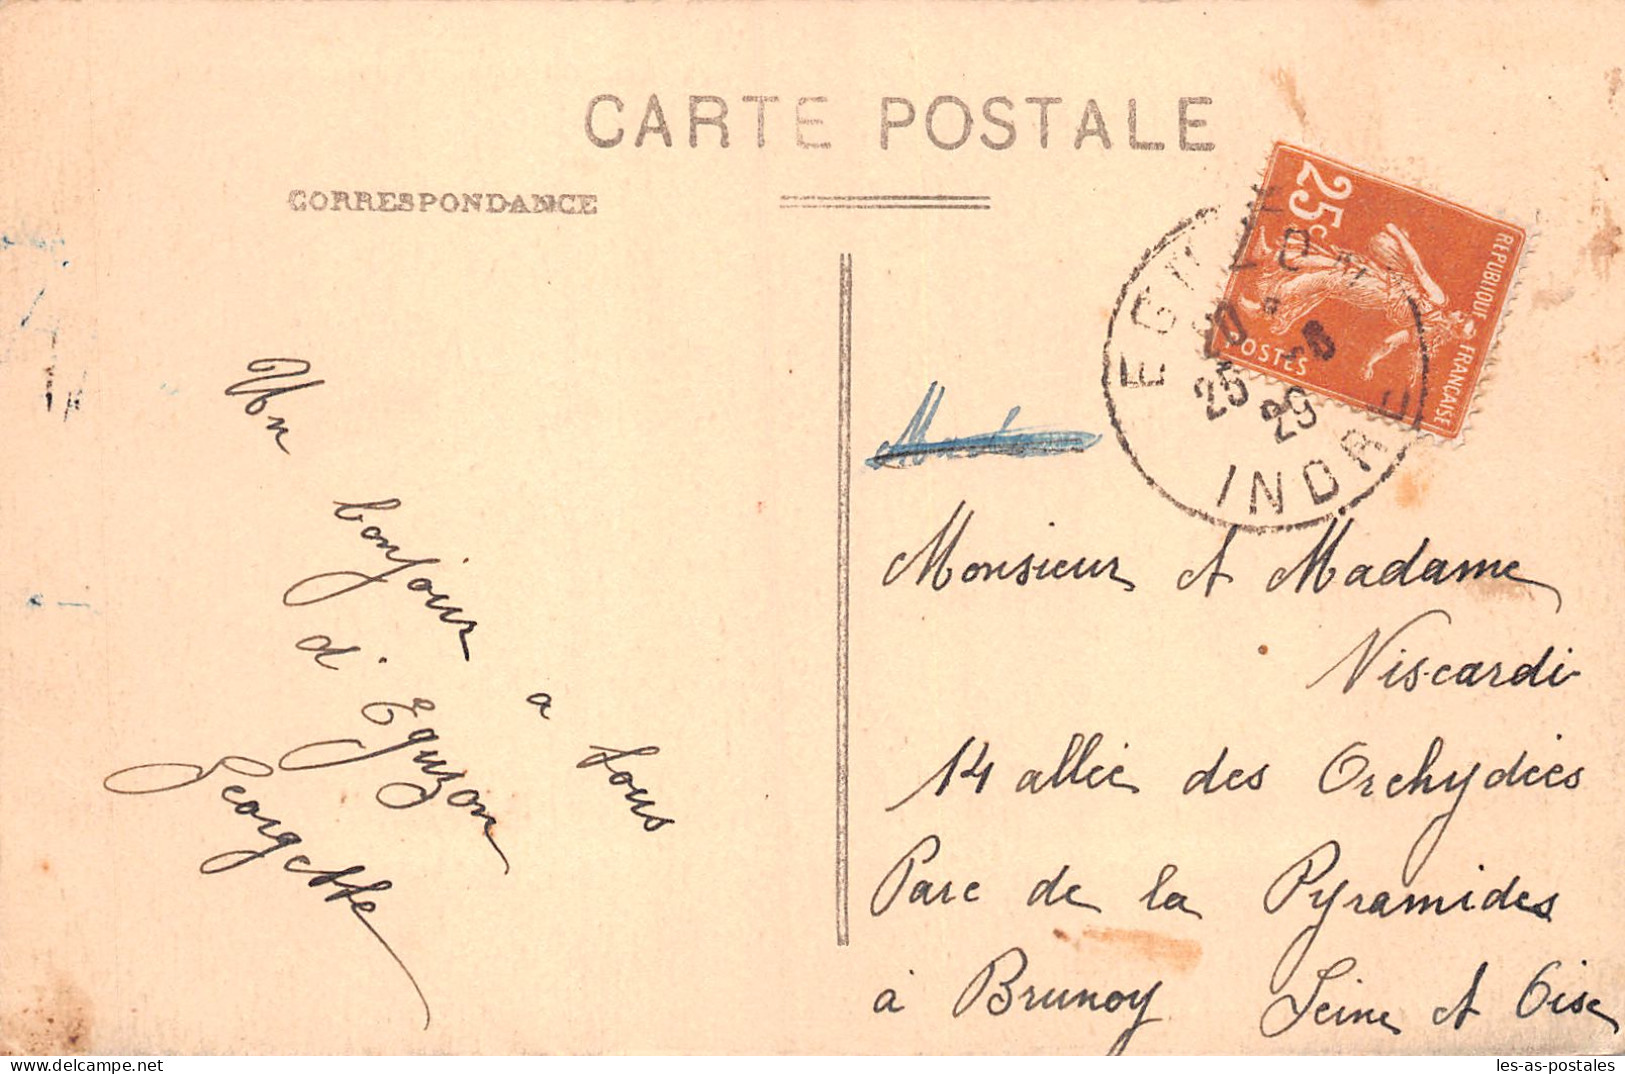 CARTE POSTALE
CORRESPONDANCE
25c
REPUBLIQUE FRANÇAISE
POSTES
INDRE
25
29
Un
bonjour à tous
d'Eguzon
Georgette
Monsieur et Madame
Viscardi
14 allée des Orchydées
Parc de la Pyramides
à Brunoy Seine et Oise
les-as-postales